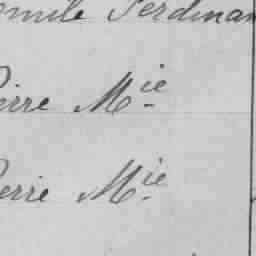 Emile Ferdinan
Pierre Mie
Pierre Mie